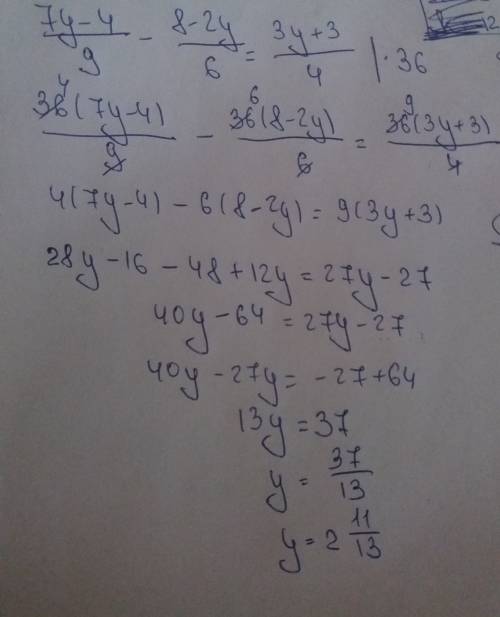 (7y-4)/9 - (8-2y)/6 = (3y+3)/4 | · 36
36⁴(7y-4)/9 - 36⁶(8-2y)/6 = 36⁹(3y+3)/4
4(7y-4) - 6(8-2y) = 9(3y+3)
28y-16-48+12y=27y-27
40y-64=27y-27
40y-27y=-27+64
13y=37
y=37/13
y=2 11/13